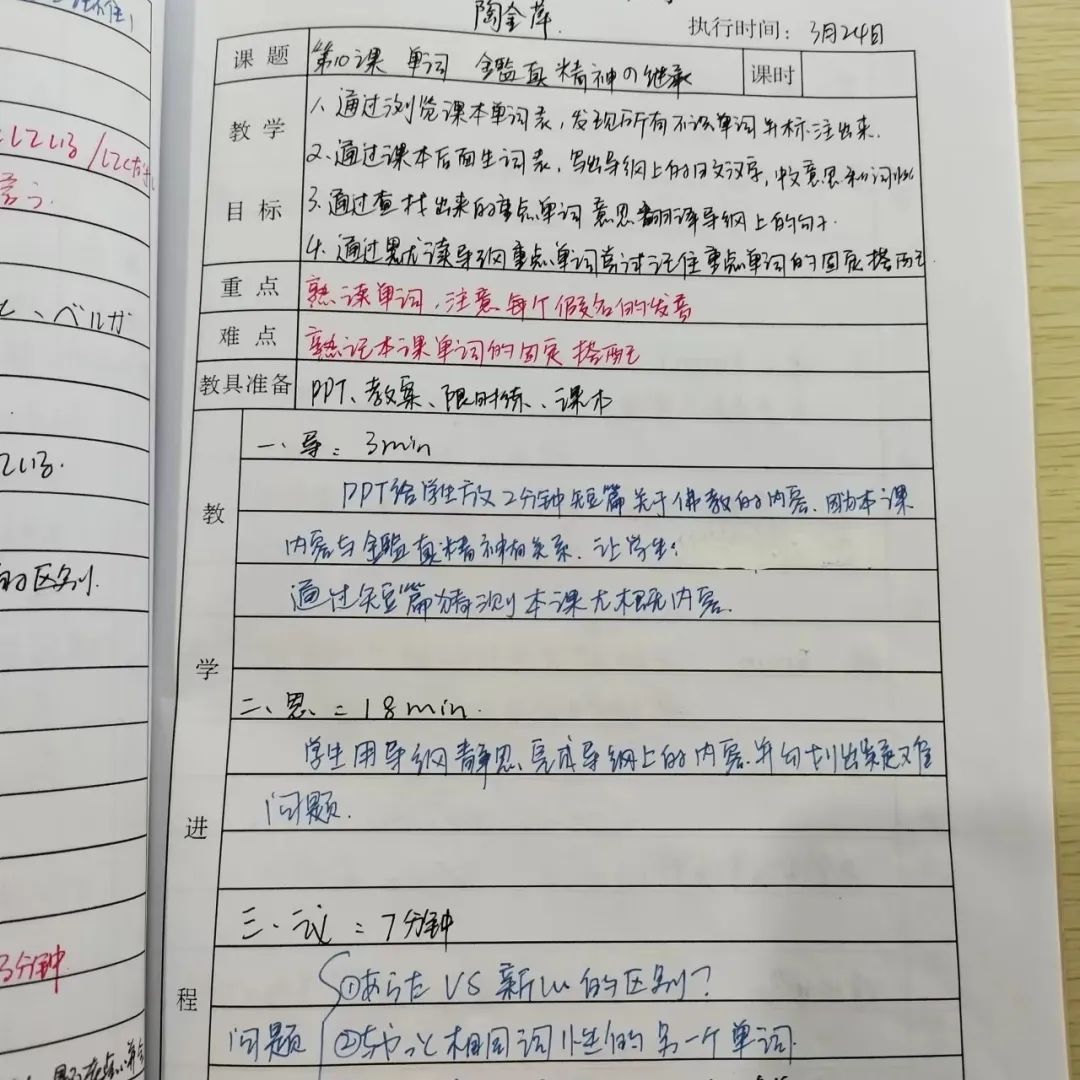 陶金萍.
执行时间: 3月24日
课题 第10课 单词 鑑真精神の继承 课时
教学目标
1. 通过浏览课本单词表,发现所有不认单词并标注出来.
2. 通过课本后面生词表,写出导纲上的日文汉字,中文意思和词性
3. 通过查找出来的重点单词意思翻译导纲上的句子.
4. 通过熟读导纲重点单词尝试记住重点单词的固定搭配
重点 熟读单词,注意每个假名的发音
难点 熟记本课单词的固定搭配
教具准备 PPT、教案、限时练、课本
教学进程
一、导: 3min
PPT给学生放2分钟短篇关于佛教的内容、因为本课
内容与鑑真精神有关系.让学生:
通过短篇猜测本课大概内容.
二、思: 18min.
学生用导纲静思、完成导纲上的内容.并勾划出疑难
问题.
三.议: 7分钟
问题
①あらた VS 新しい的区别?
②ちゃっと相同词性的另一个单词.
ベルガ
的区别.
3分钟